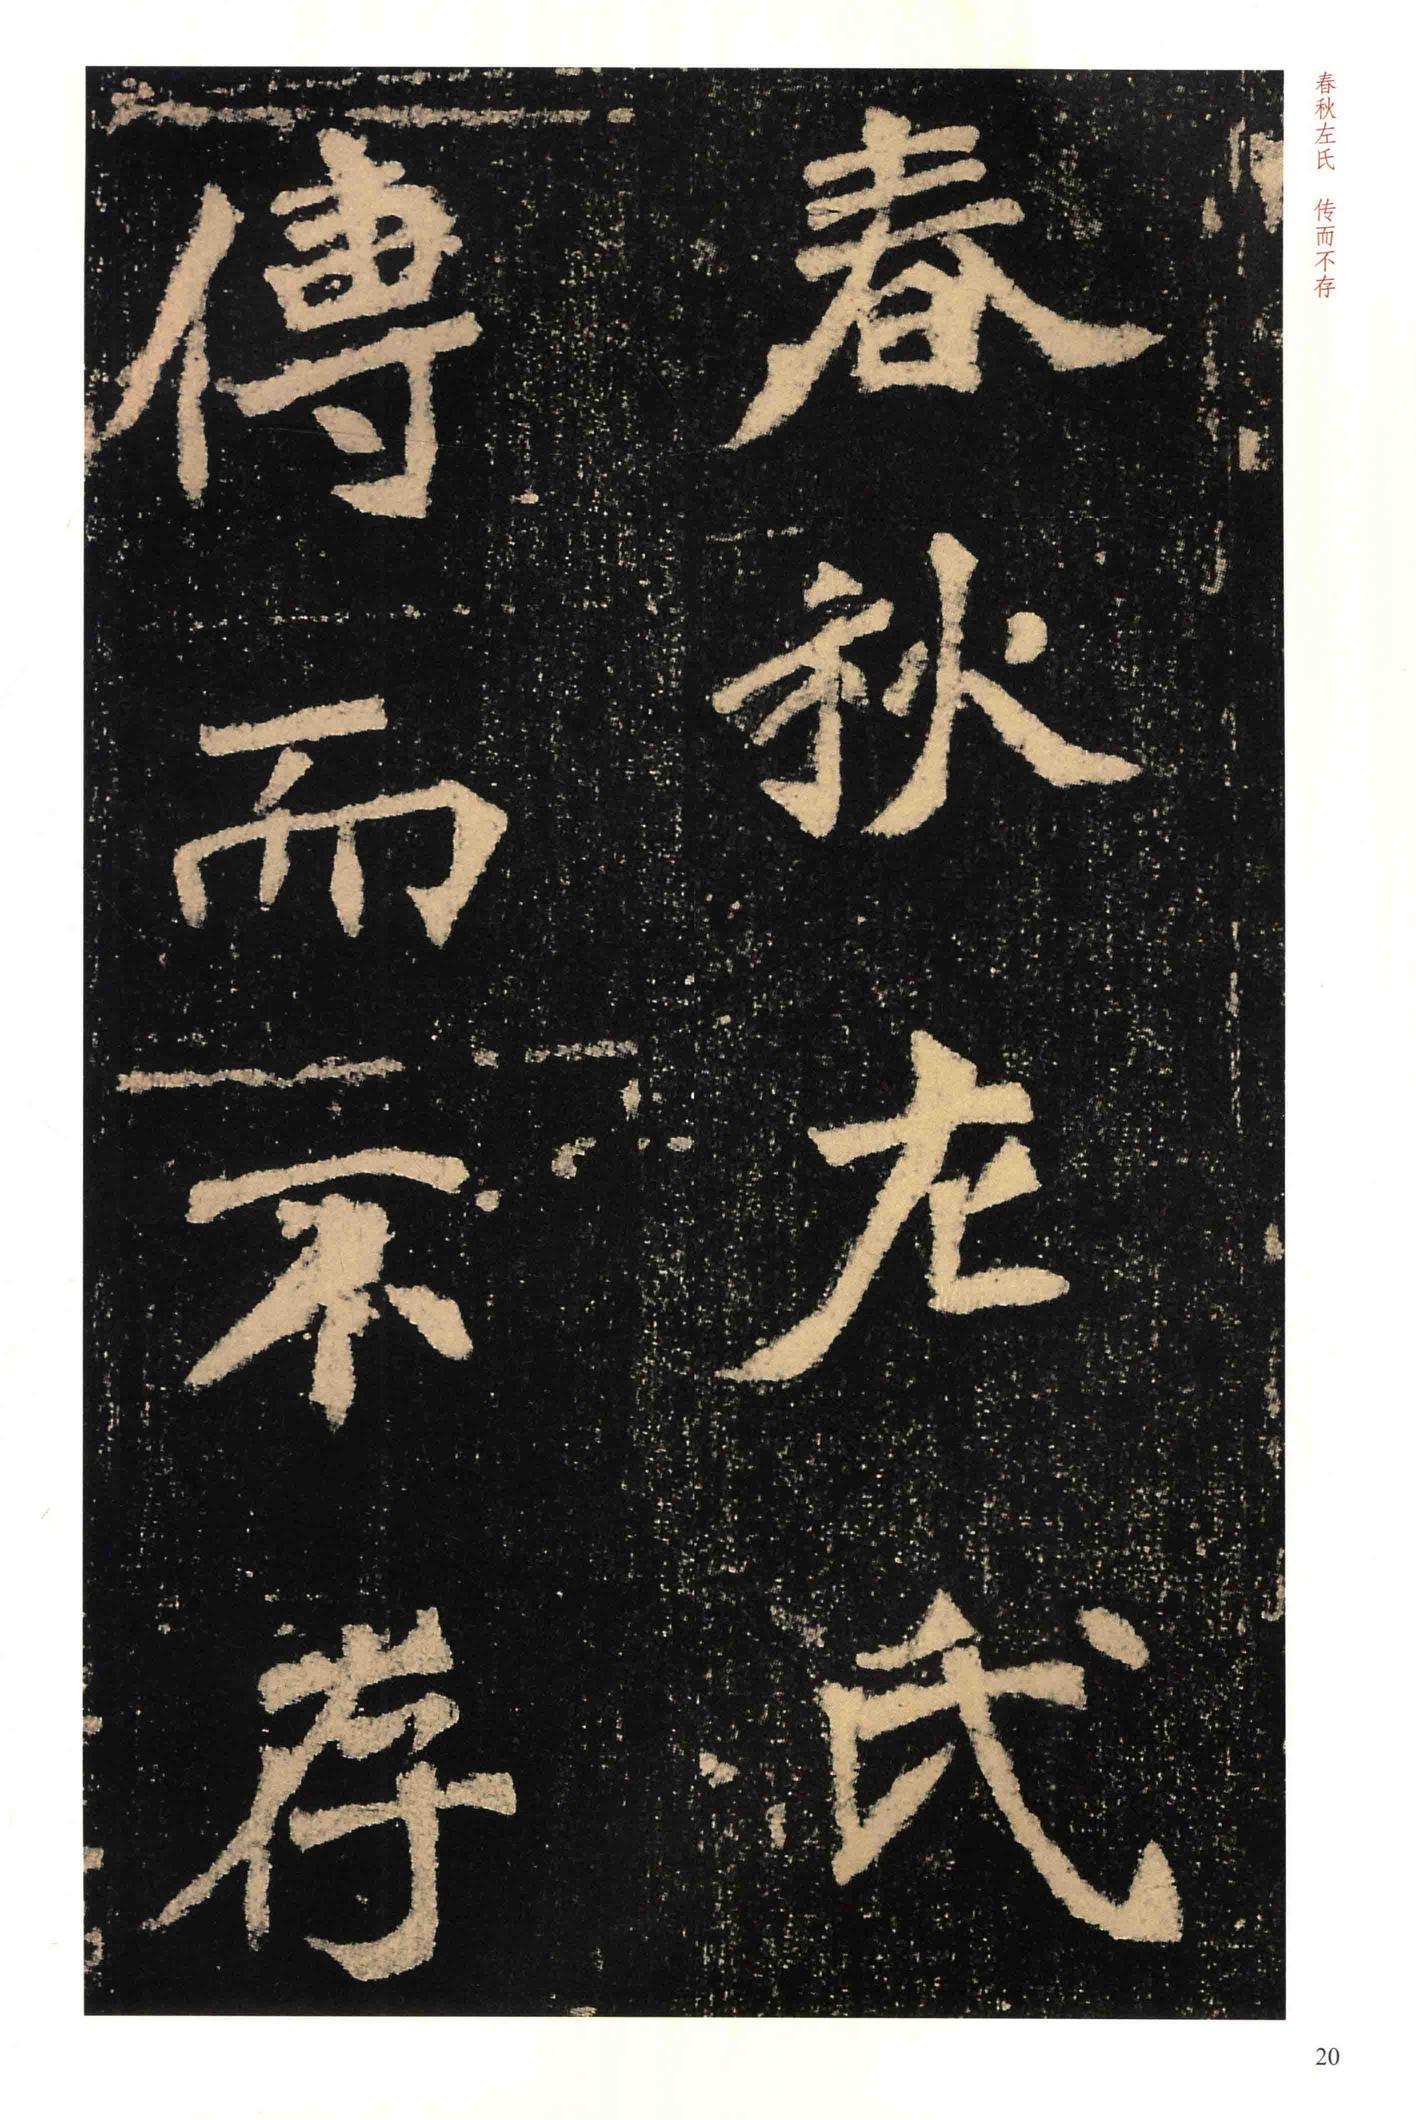 春秋左氏
傳而不存
春秋左氏 传而不存
20